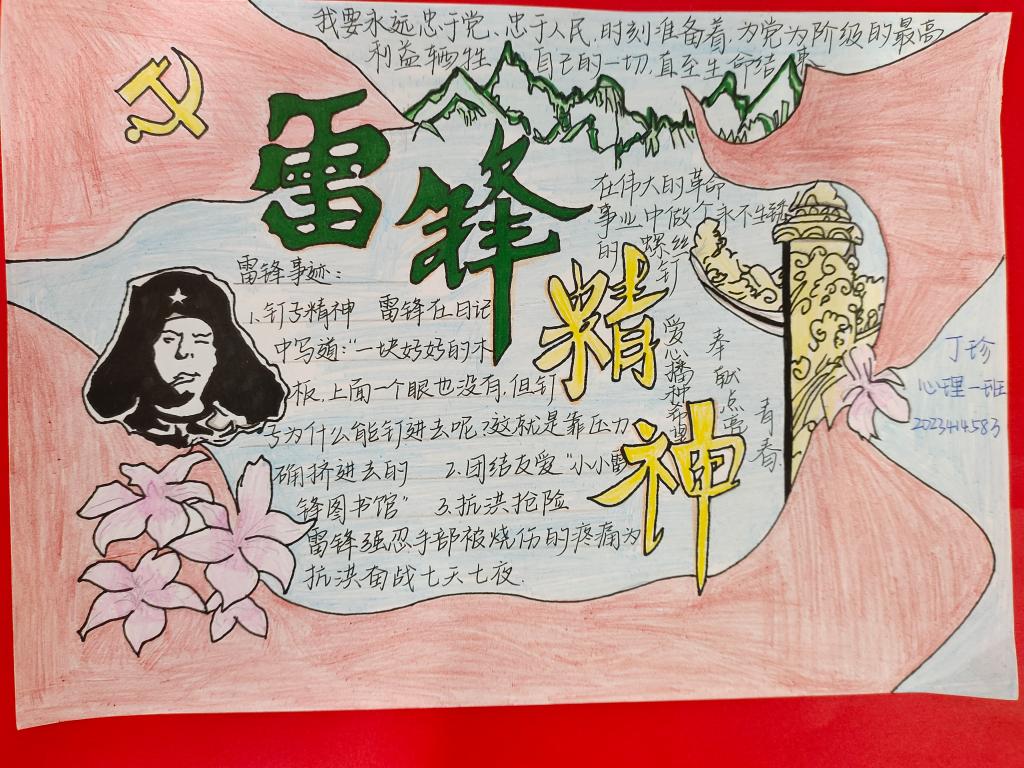 我要永远忠于党、忠于人民,时刻准备着,为党为阶级的最高
利益牺牲 自己的一切,直至生命结束
雷锋
精神
在伟大的革命
事业中做个永不生锈
的 螺丝
钉
雷锋事迹:
1、钉子精神 雷锋在日记
中写道:“一块好好的木
板,上面一个眼也没有,但钉
子为什么能钉进去呢?这就是靠压力
硝挤进去的 2.团结友爱“小小雷
锋图书馆” 3.抗洪抢险
雷锋强忍手部被烧伤的疼痛为
抗洪奋战七天七夜.
爱心播种希望
奉献点亮
青春
丁珍
心理一班
2023414583